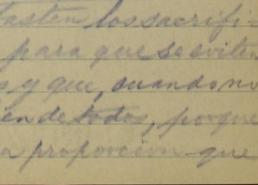 fasten los sacrifi-
para que se eviten
s y que, cuando no
en de todos, porque
a proporción que